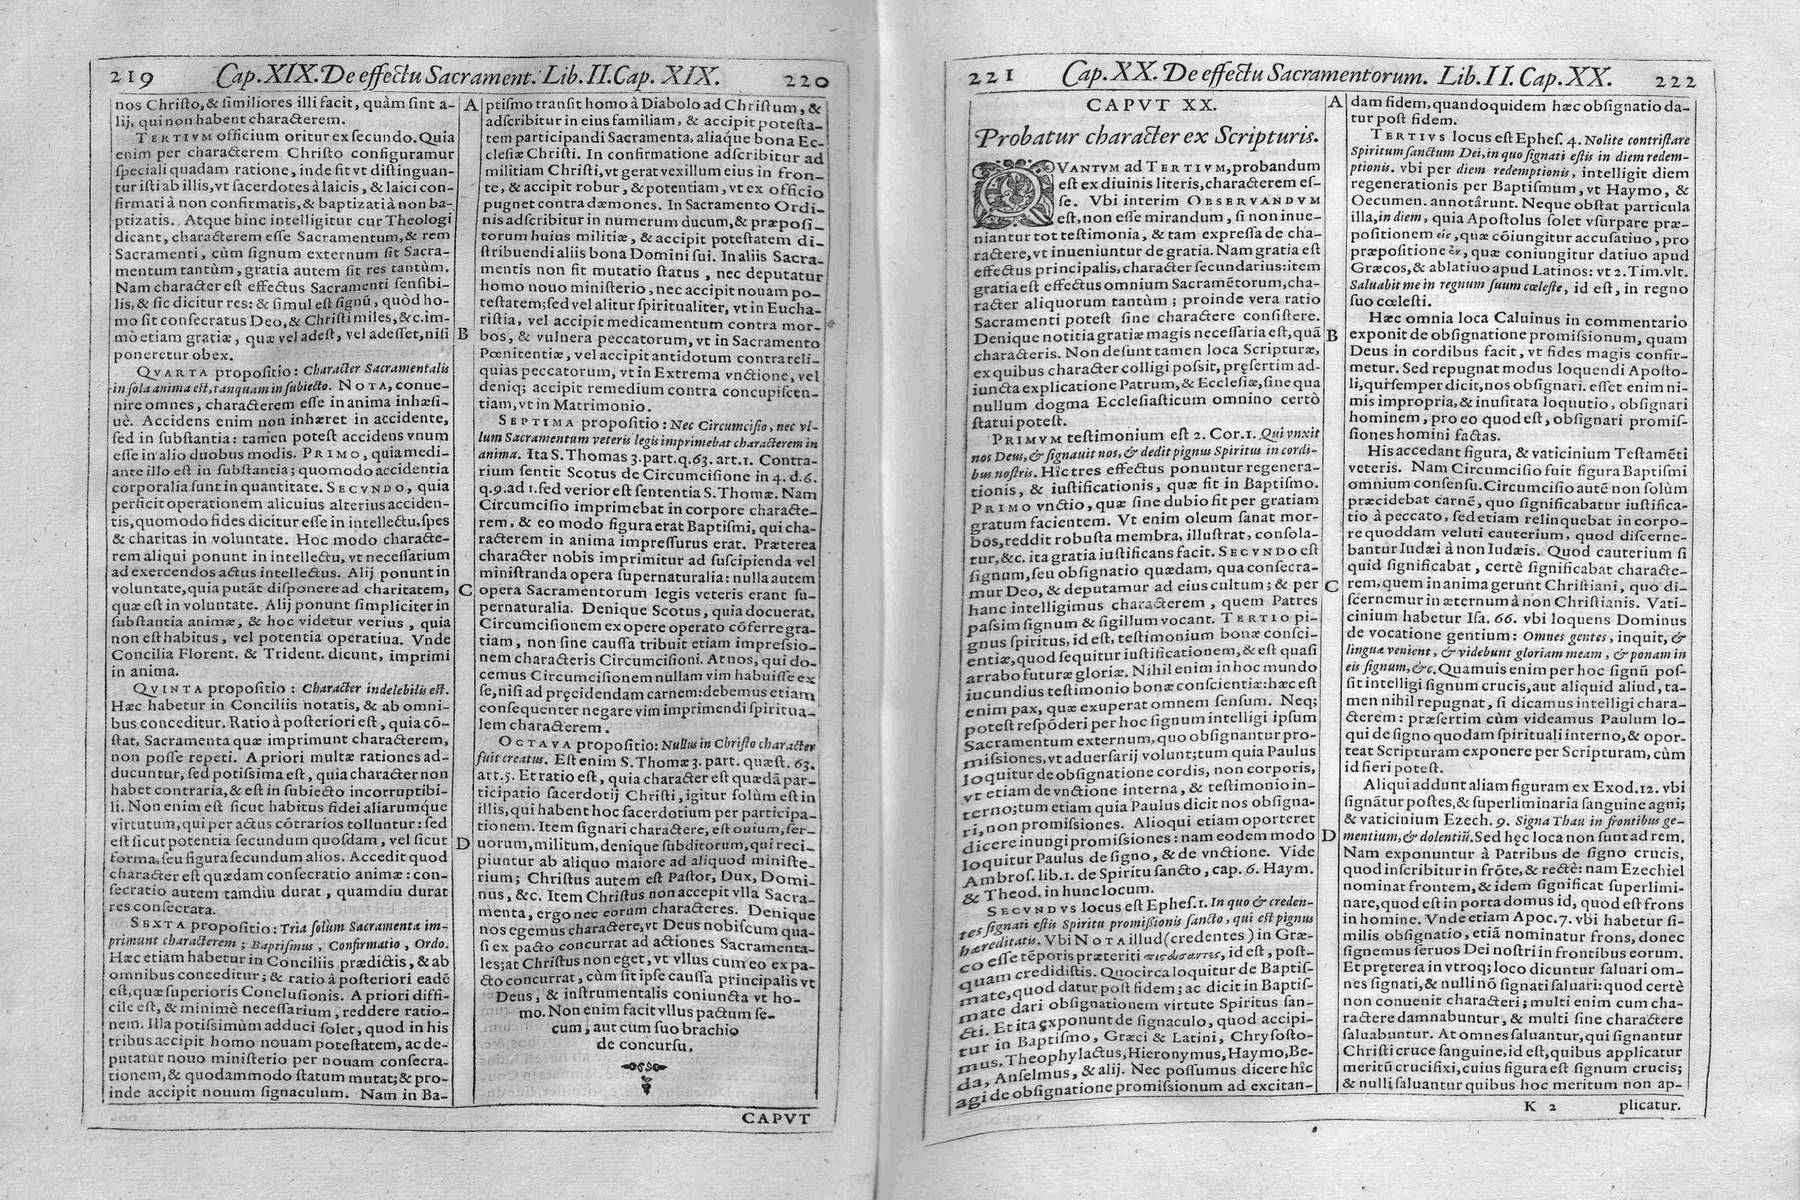 219 Cap. XIX. De effectu Sacrament. Lib. II. Cap. XIX. 220
nos Christo, & similiores illi facit, quàm sint a-
lij, qui non habent characterem.
TERTIVM officium oritur ex secundo. Quia
enim per characterem Christo configuramur
speciali quadam ratione, inde fit vt distinguan-
tur isti ab illis, vt sacerdotes à laicis, & laici con-
firmati à non confirmatis, & baptizati à non ba-
ptizatis. Atque hinc intelligitur cur Theologi
dicant, characterem esse Sacramentum, & rem
Sacramenti, cùm signum externum sit Sacra-
mentum tantùm, gratia autem sit res tantùm.
Nam character est effectus Sacramenti sensibi-
lis, & sic dicitur res: & simul est signũ, quòd ho-
mo sit consecratus Deo, & Christi miles, &c. im-
mò etiam gratiæ, quæ vel adest, vel adesset, nisi
poneretur obex.
QVARTA propositio: Character Sacramentalis
in sola anima est, tanquam in subiecto. NOTA, conue-
nire omnes, characterem esse in anima inhæsi-
uè. Accidens enim non inhæret in accidente,
sed in substantia: tamen potest accidens vnum
esse in alio duobus modis. PRIMO, quia medi-
ante illo est in substantia; quomodo accidentia
corporalia sunt in quantitate. SECVNDO, quia
perficit operationem alicuius alterius acciden-
tis, quomodo fides dicitur esse in intellectu, spes
& charitas in voluntate. Hoc modo characte-
rem aliqui ponunt in intellectu, vt necessarium
ad exercendos actus intellectus. Alij ponunt in
voluntate, quia putãt disponere ad charitatem,
quæ est in voluntate. Alij ponunt simpliciter in
substantia animæ, & hoc videtur verius, quia
non est habitus, vel potentia operatiua. Vnde
Concilia Florent. & Trident. dicunt, imprimi
in anima.
QVINTA propositio: Character indelebilis est.
Hæc habetur in Conciliis notatis, & ab omni-
bus conceditur. Ratio à posteriori est, quia cõ-
stat, Sacramenta quæ imprimunt characterem,
non posse repeti. A priori multæ rationes ad-
ducuntur, sed potissima est, quia character non
habet contraria, & est in subiecto incorruptibi-
li. Non enim est sicut habitus fidei aliarumq́ue
virtutum, qui per actus cõtrarios tolluntur: sed
est sicut potentia secundum quosdam, vel sicut
forma, seu figura secundum alios. Accedit quod
character est quædam consecratio animæ: con-
secratio autem tamdiu durat, quamdiu durat
res consecrata.
SEXTA propositio: Tria solùm Sacramenta im-
primunt characterem; Baptismus, Confirmatio, Ordo.
Hæc etiam habetur in Conciliis prædictis, & ab
omnibus conceditur; & ratio à posteriori eadẽ
est, quæ superioris Conclusionis. A priori diffi-
cile est, & minimè necessarium, reddere ratio-
nem. Illa potissimùm adduci solet, quod in his
tribus accipit homo nouam potestatem, ac de-
putatur nouo ministerio per nouam consecra-
tionem, & quodammodo statum mutat; & pro-
inde accipit nouum signaculum. Nam in Ba-
A
B
C
D
ptismo transit homo à Diabolo ad Christum, &
adscribitur in eius familiam, & accipit potesta-
tem participandi Sacramenta, aliaque bona Ec-
clesiæ Christi. In confirmatione adscribitur ad
militiam Christi, vt gerat vexillum eius in fron-
te, & accipit robur, & potentiam, vt ex officio
pugnet contra dæmones. In Sacramento Ordi-
nis adscribitur in numerum ducum, & præposi-
torum huius militiæ, & accipit potestatem di-
stribuendi aliis bona Domini sui. In aliis Sacra-
mentis non fit mutatio status, nec deputatur
homo nouo ministerio, nec accipit nouam po-
testatem; sed vel alitur spiritualiter, vt in Eucha-
ristia, vel accipit medicamentum contra mor-
bos, & vulnera peccatorum, vt in Sacramento
Pœnitentiæ, vel accipit antidotum contra reli-
quias peccatorum, vt in Extrema vnctione, vel
deniq; accipit remedium contra concupiscen-
tiam, vt in Matrimonio.
SEPTIMA propositio: Nec Circumcisio, nec vl-
lum Sacramentum veteris legis imprimebat characterem in
anima. Ita S. Thomas 3. part. q. 63. art. 1. Contra-
rium sentit Scotus de Circumcisione in 4. d. 6.
q. 9. ad 1. sed verior est sententia S. Thomæ. Nam
Circumcisio imprimebat in corpore characte-
rem, & eo modo figura erat Baptismi, qui cha-
racterem in anima impressurus erat. Præterea
character nobis imprimitur ad suscipienda vel
ministranda opera supernaturalia: nulla autem
opera Sacramentorum legis veteris erant su-
pernaturalia. Denique Scotus, quia docuerat,
Circumcisionem ex opere operato cõferre gra-
tiam, non sine caussa tribuit etiam impressio-
nem characteris Circumcisioni. At nos, qui do-
cemus Circumcisionem nullam vim habuisse ex
se, nisi ad pręcidendam carnem: debemus etiam
consequenter negare vim imprimendi spiritua-
lem characterem.
OCTAVA propositio: Nullus in Christo character
fuit creatus. Est enim S. Thomæ 3. part. quæst. 63.
art. 5. Et ratio est, quia character est quædã par-
ticipatio sacerdotij Christi, igitur solùm est in
illis, qui habent hoc sacerdotium per participa-
tionem. Item signari charactere, est ouium, ser-
uorum, militum, denique subditorum, qui reci-
piuntur ab aliquo maiore ad aliquod ministe-
rium; Christus autem est Pastor, Dux, Domi-
nus, &c. Item Christus non accepit vlla Sacra-
menta, ergo nec eorum characteres. Denique
nos egemus charactere, vt Deus nobiscum qua-
si ex pacto concurrat ad actiones Sacramenta-
les; at Christus non eget, vt vllus cum eo ex pa-
cto concurrat, cùm sit ipse caussa principalis vt
Deus, & instrumentalis coniuncta vt ho-
mo. Non enim facit vllus pactum se-
cum, aut cum suo brachio
de concursu.
CAPVT
221 Cap. XX. De effectu Sacramentorum. Lib. II. Cap. XX. 222
CAPVT XX.
Probatur character ex Scripturis.
QVANTVM ad TERTIVM, probandum
est ex diuinis literis, characterem es-
se. Vbi interim OBSERVANDVM
est, non esse mirandum, si non inue-
niantur tot testimonia, & tam expressa de cha-
ractere, vt inueniuntur de gratia. Nam gratia est
effectus principalis, character secundarius: item
gratia est effectus omnium Sacramẽtorum, cha-
racter aliquorum tantùm; proinde vera ratio
Sacramenti potest sine charactere consistere.
Denique notitia gratiæ magis necessaria est, quã
characteris. Non desunt tamen loca Scripturæ,
ex quibus character colligi possit, pręsertim ad-
iuncta explicatione Patrum, & Ecclesiæ, sine qua
nullum dogma Ecclesiasticum omnino certò
statui potest.
PRIMVM testimonium est 2. Cor. 1. Qui vnxit
nos Deus, & signauit nos, & dedit pignus Spiritus in cordi-
bus nostris. Hîc tres effectus ponuntur regenera-
tionis, & iustificationis, quæ fit in Baptismo.
PRIMO vnctio, quæ sine dubio fit per gratiam
gratum facientem. Vt enim oleum sanat mor-
bos, reddit robusta membra, illustrat, consola-
tur, &c. ita gratia iustificans facit. SECVNDO est
signum, seu obsignatio quædam, qua consecra-
mur Deo, & deputamur ad eius cultum; & per
hanc intelligimus characterem, quem Patres
passim signum & sigillum vocant. TERTIO pi-
gnus spiritus, id est, testimonium bonæ consci-
entiæ, quod sequitur iustificationem, & est quasi
arrabo futuræ gloriæ. Nihil enim in hoc mundo
iucundius testimonio bonæ conscientiæ: hæc est
enim pax, quæ exuperat omnem sensum. Neq;
potest respõderi per hoc signum intelligi ipsum
Sacramentum externum, quo obsignantur pro-
missiones, vt aduersarij volunt; tum quia Paulus
loquitur de obsignatione cordis, non corporis,
vt etiam de vnctione interna, & testimonio in-
terno; tum etiam quia Paulus dicit nos obsigna-
ri, non promissiones. Alioqui etiam oporteret
dicere inungi promissiones: nam eodem modo
loquitur Paulus de signo, & de vnctione. Vide
Ambros. lib. 1. de Spiritu sancto, cap. 6. Haym.
& Theod. in hunc locum.
SECVNDVS locus est Ephes. 1. In quo & creden-
tes signati estis Spiritu promißionis sancto, qui est pignus
hæreditatis. Vbi NOTA illud (credentes) in Græ-
co esse tẽporis præteriti πιςεύσαντες, id est, post-
quam credidistis. Quocirca loquitur de Baptis-
mate, quod datur post fidem; ac dicit in Baptis-
mate dari obsignationem virtute Spiritus san-
cti. Et ita exponunt de signaculo, quod accipi-
tur in Baptismo, Græci & Latini, Chrysosto-
mus, Theophylactus, Hieronymus, Haymo, Be-
da, Anselmus, & alij. Nec possumus dicere hîc
agi de obsignatione promissionum ad excitan-
A
B
C
D
dam fidem, quandoquidem hæc obsignatio da-
tur post fidem.
TERTIVS locus est Ephes. 4. Nolite contristare
Spiritum sanctum Dei, in quo signati estis in diem redem-
ptionis. vbi per diem redemptionis, intelligit diem
regenerationis per Baptismum, vt Haymo, &
Oecumen. annotârunt. Neque obstat particula
illa, in diem, quia Apostolus solet vsurpare præ-
positionem εἰς, quæ cõiungitur accusatiuo, pro
præpositione ἐν, quæ coniungitur datiuo apud
Græcos, & ablatiuo apud Latinos: vt 2. Tim. vlt.
Saluabit me in regnum suum cœleste, id est, in regno
suo cœlesti.
Hæc omnia loca Caluinus in commentario
exponit de obsignatione promissionum, quam
Deus in cordibus facit, vt fides magis confir-
metur. Sed repugnat modus loquendi Aposto-
li, qui semper dicit, nos obsignari. esset enim ni-
mis impropria, & inusitata loquutio, obsignari
hominem, pro eo quod est, obsignari promis-
siones homini factas.
His accedant figura, & vaticinium Testamẽti
veteris. Nam Circumcisio fuit figura Baptismi
omnium consensu. Circumcisio autẽ non solùm
præcidebat carnẽ, quo significabatur iustifica-
tio à peccato, sed etiam relinquebat in corpo-
re quoddam veluti cauterium, quo discerne-
bantur Iudæi à non Iudæis. Quod cauterium si
quid significabat, certè significabat characte-
rem, quem in anima gerunt Christiani, quo di-
scernemur in æternum à non Christianis. Vati-
cinium habetur Isa. 66. vbi loquens Dominus
de vocatione gentium: Omnes gentes, inquit, &
linguæ venient, & videbunt gloriam meam, & ponam in
eis signum, &c. Quamuis enim per hoc signũ pos-
sit intelligi signum crucis, aut aliquid aliud, ta-
men nihil repugnat, si dicamus intelligi chara-
cterem: præsertim cùm videamus Paulum lo-
qui de signo quodam spirituali interno, & opor-
teat Scripturam exponere per Scripturam, cùm
id fieri potest.
Aliqui addunt aliam figuram ex Exod. 12. vbi
signãtur postes, & superliminaria sanguine agni;
& vaticinium Ezech. 9. Signa Thau in frontibus ge-
mentium, & dolentiũ. Sed hęc loca non sunt ad rem.
Nam exponuntur à Patribus de signo crucis,
quod inscribitur in frõte, & rectè: nam Ezechiel
nominat frontem, & idem significat superlimi-
nare, quod est in porta domus id, quod est frons
in homine. Vnde etiam Apoc. 7. vbi habetur si-
milis obsignatio, etiã nominatur frons, donec
signemus seruos Dei nostri in frontibus eorum.
Et pręterea in vtroq; loco dicuntur saluari om-
nes signati, & nulli nõ signati saluari: quod certè
non conuenit characteri; multi enim cum cha-
ractere damnabuntur, & multi sine charactere
saluabuntur. At omnes saluantur, qui signantur
Christi cruce sanguine, id est, quibus applicatur
meritũ crucifixi, cuius figura est signum crucis;
& nulli saluantur quibus hoc meritum non ap-
K 2 plicatur.